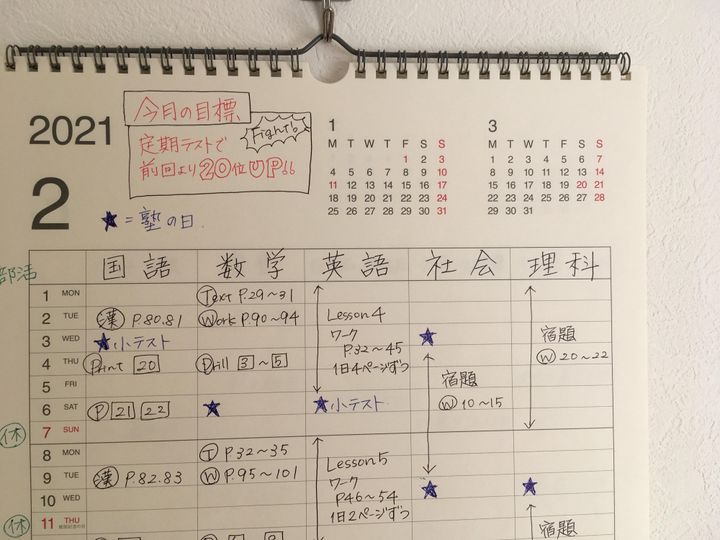 2021
2
今月の目標
Fight!
定期テストで
前回より20位UP!!
★=塾の日
1
M T W T F S S
1 2 3
4 5 6 7 8 9 10
11 12 13 14 15 16 17
18 19 20 21 22 23 24
25 26 27 28 29 30 31
3
M T W T F S S
1 2 3 4 5 6 7
8 9 10 11 12 13 14
15 16 17 18 19 20 21
22 23 24 25 26 27 28
29 30 31
部活 国語 数学 英語 社会 理科
1 MON Text P.29~31
2 TUE 漢 P.80.81 Work P.90~94 Lesson4
3 WED ★小テスト ワーク ★ 宿題
4 THU Print 20 Drill 3~5 P.32~45 W 20~22
5 FRI 1日4ページずつ 宿題
6 SAT P 21 22 ★ ★小テスト W 10~15
休 7 SUN
8 MON T P.32~35 Lesson5
9 TUE 漢 P.82.83 W P.95~101 ワーク
10 WED P46~54 ★ ★
休 11 THU 1日2ページずつ
宿題